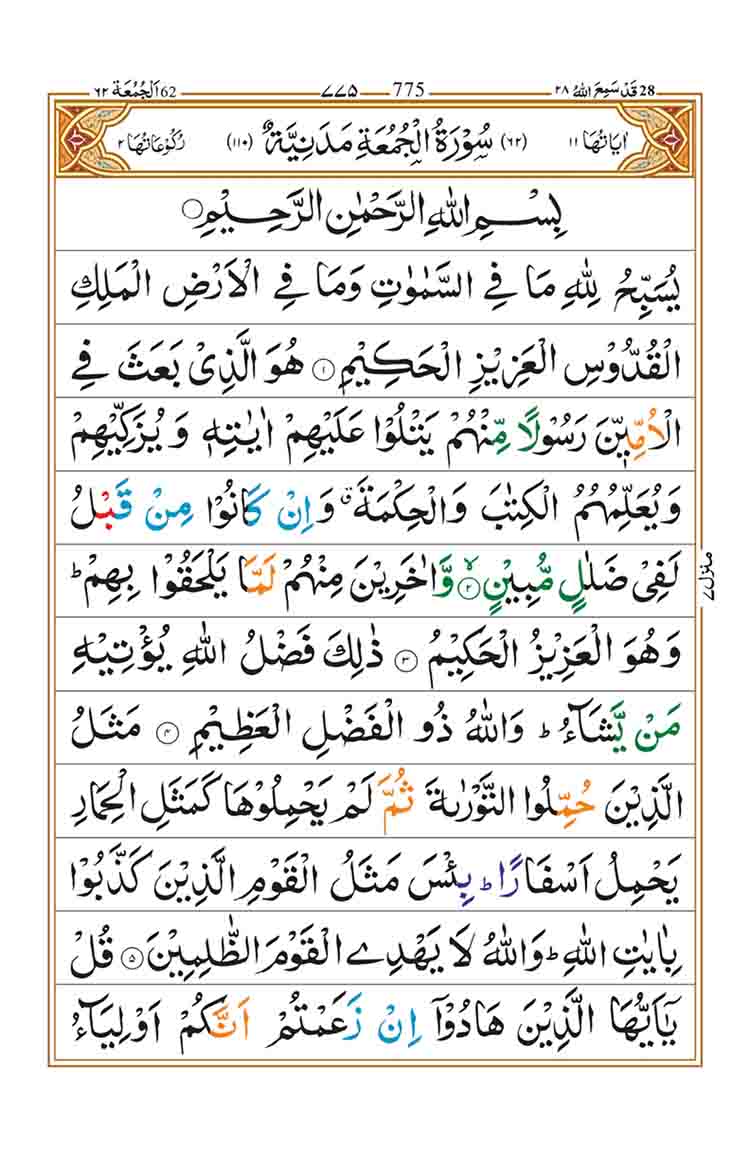 28 قَدْ سَمِعَ اللّٰهُ ٢٨ 775 ٧٧٥ 62 اَلْجُمُعَة ٦٢
اٰيَاتُهَا ١١ (٦٢) سُوْرَةُ الْجُمُعَةِ مَدَنِيَّةٌ (١١٠) رُكُوْعَاتُهَا ٢
بِسْمِ اللّٰهِ الرَّحْمٰنِ الرَّحِيْمِ
يُسَبِّحُ لِلّٰهِ مَا فِي السَّمٰوٰتِ وَمَا فِي الْاَرْضِ الْمَلِكِ
الْقُدُّوْسِ الْعَزِيْزِ الْحَكِيْمِ ۝١ هُوَ الَّذِيْ بَعَثَ فِي
الْاُمِّيّٖنَ رَسُوْلًا مِّنْهُمْ يَتْلُوْا عَلَيْهِمْ اٰيٰتِهٖ وَيُزَكِّيْهِمْ
وَيُعَلِّمُهُمُ الْكِتٰبَ وَالْحِكْمَةَ ۗ وَاِنْ كَانُوْا مِنْ قَبْلُ
لَفِيْ ضَلٰلٍ مُّبِيْنٍ ۝٢ۙ وَّاٰخَرِيْنَ مِنْهُمْ لَمَّا يَلْحَقُوْا بِهِمْ ؕ
وَهُوَ الْعَزِيْزُ الْحَكِيْمُ ۝٣ ذٰلِكَ فَضْلُ اللّٰهِ يُؤْتِيْهِ
مَنْ يَّشَآءُ ؕ وَاللّٰهُ ذُو الْفَضْلِ الْعَظِيْمِ ۝٤ مَثَلُ
الَّذِيْنَ حُمِّلُوا التَّوْرٰىةَ ثُمَّ لَمْ يَحْمِلُوْهَا كَمَثَلِ الْحِمَارِ
يَحْمِلُ اَسْفَارًا ؕ بِئْسَ مَثَلُ الْقَوْمِ الَّذِيْنَ كَذَّبُوْا
بِاٰيٰتِ اللّٰهِ ؕ وَاللّٰهُ لَا يَهْدِي الْقَوْمَ الظّٰلِمِيْنَ ۝٥ قُلْ
يٰٓاَيُّهَا الَّذِيْنَ هَادُوْٓا اِنْ زَعَمْتُمْ اَنَّكُمْ اَوْلِيَآءُ
منزل ٧